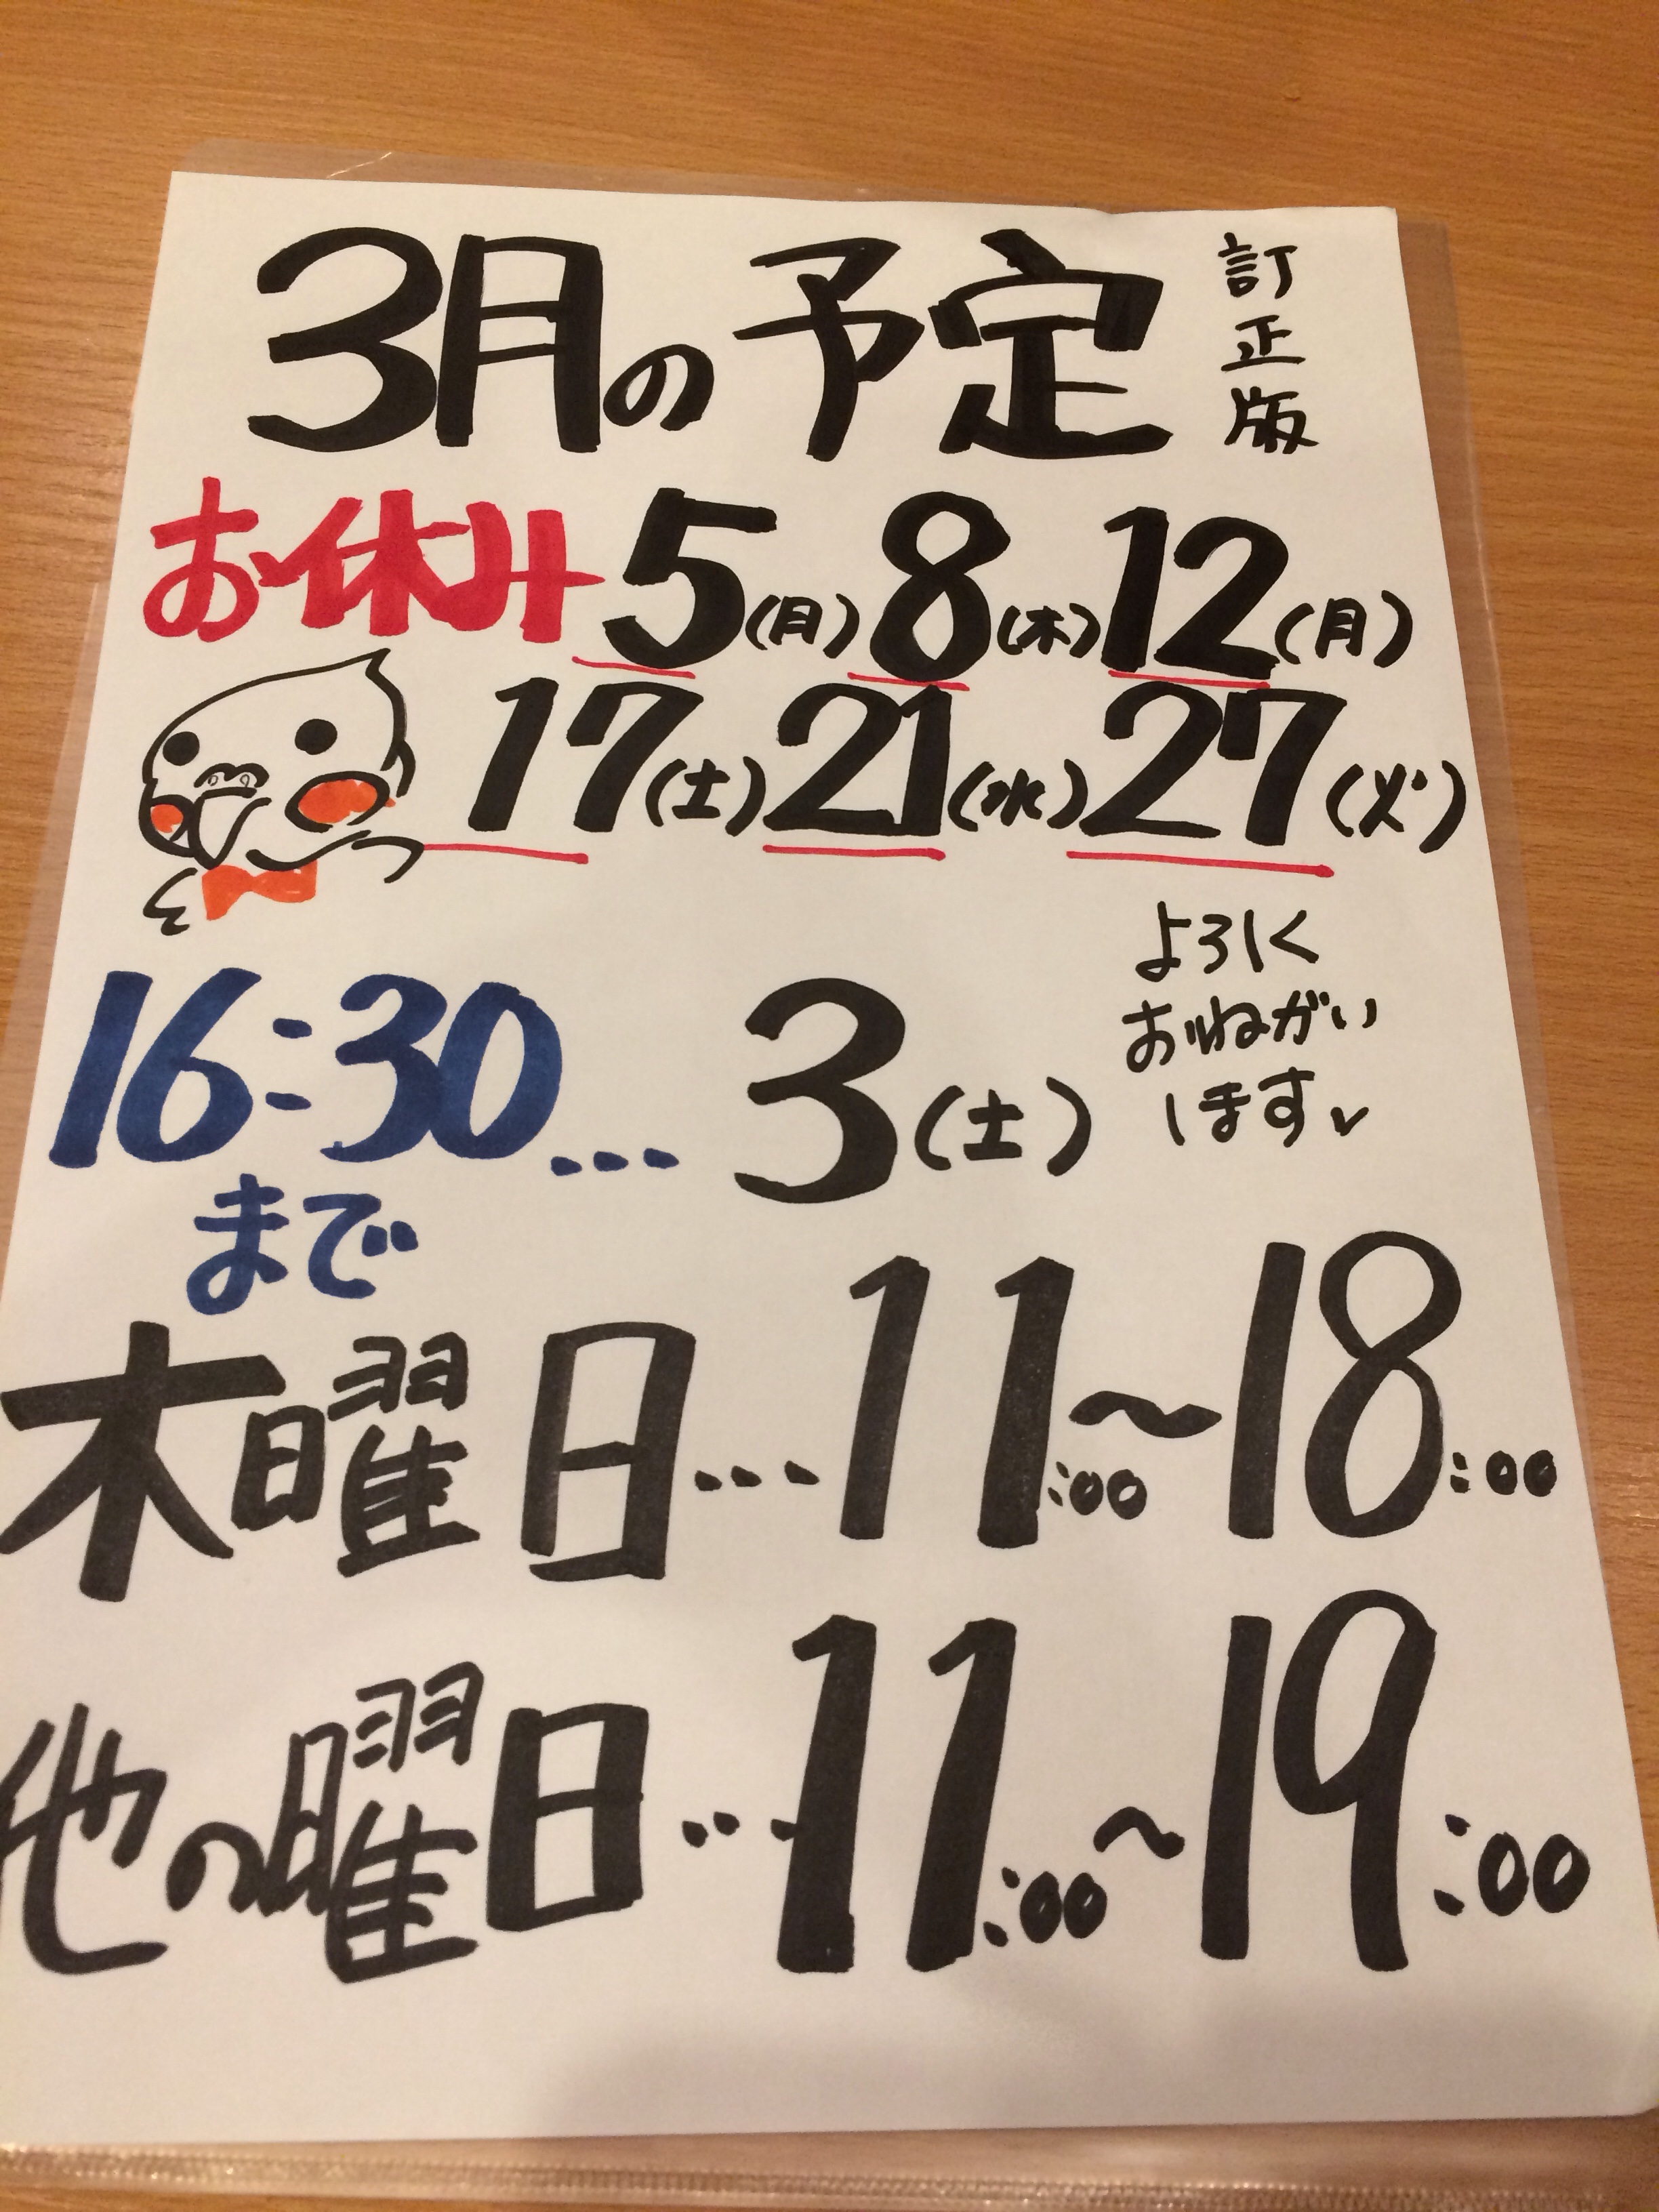 3月の予定
訂正版
お休み 5(月) 8(木) 12(月)
17(土) 21(水) 27(火)
16:30... 3(土)
まで
よろしく
おねがい
します
木曜日...11:00〜18:00
他の曜日...11:00〜19:00